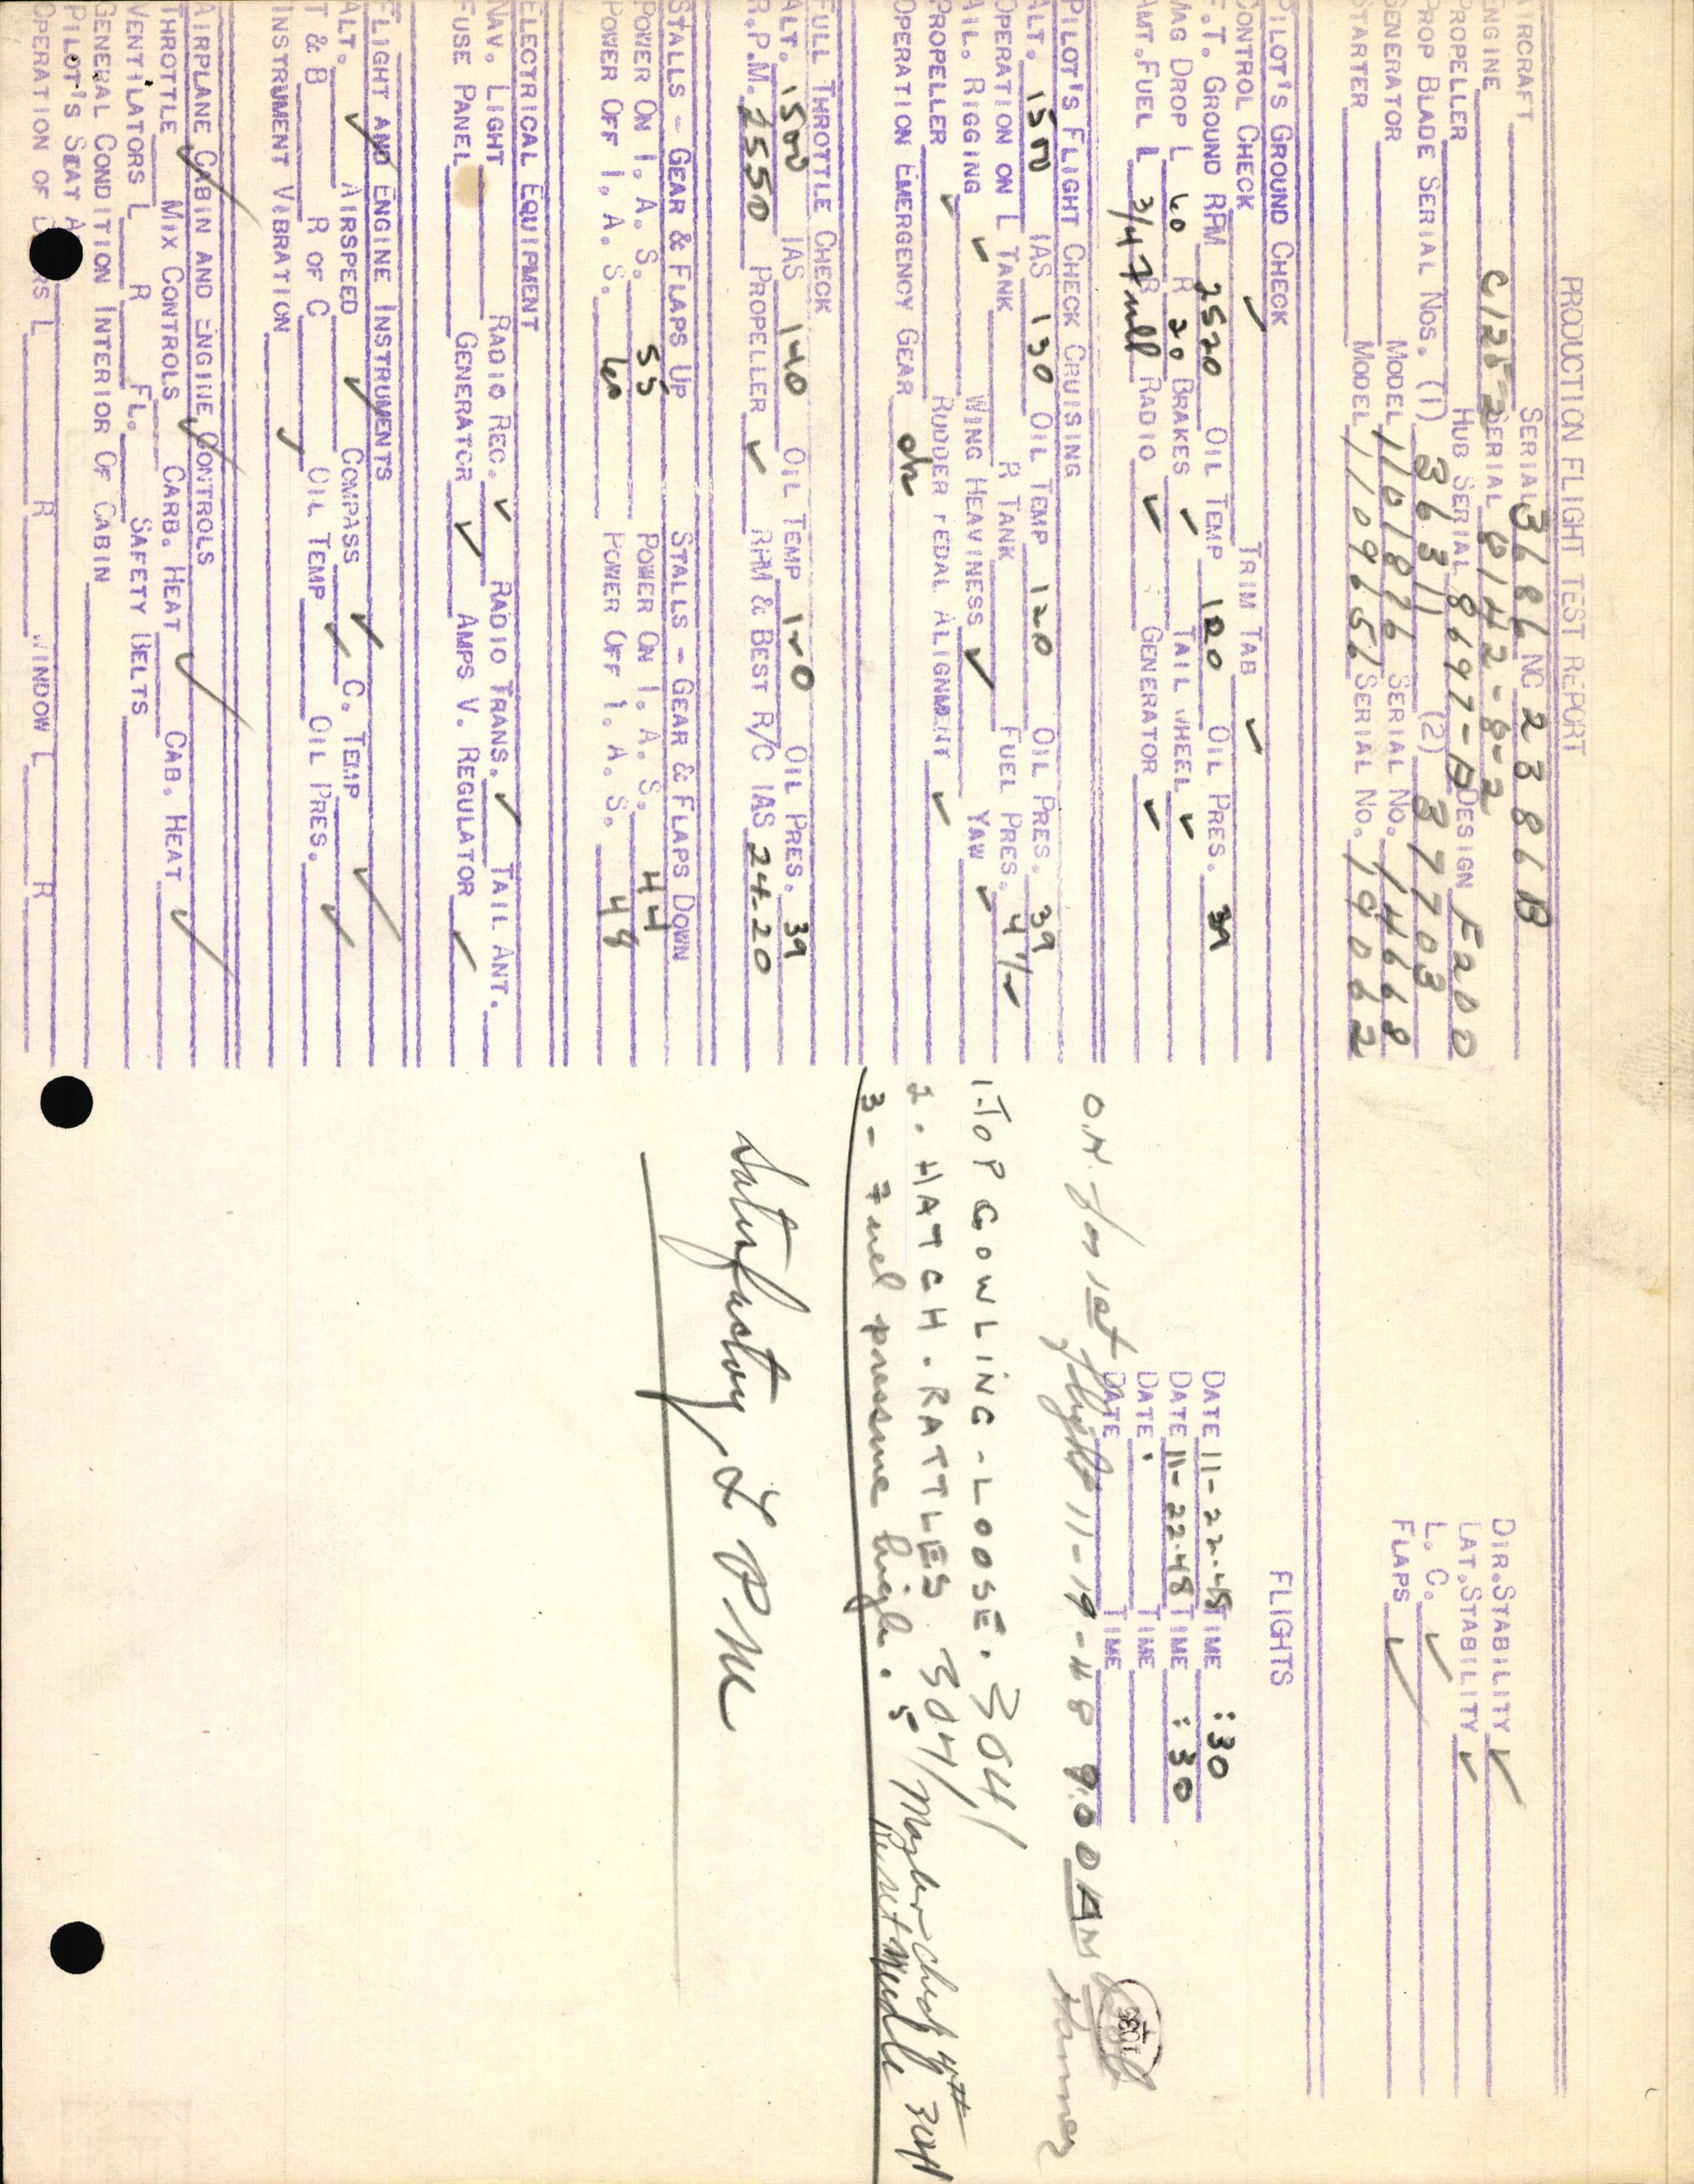 PRODUCTION FLIGHT TEST REPORT
AIRCRAFT SERIAL 3686 NC 2386B DIR. STABILITY ✓
ENGINE C125-2 SERIAL 0142-8-2 LAT. STABILITY ✓
PROPELLER HUB SERIAL 8697-A DESIGN F200 L. C. ✓
PROP BLADE SERIAL NOS. (1) 36311 (2) 37703 FLAPS ✓
GENERATOR MODEL 1101876 SERIAL NO. 14668
STARTER MODEL 1109656 SERIAL NO. 19062
PILOT'S GROUND CHECK FLIGHTS
CONTROL CHECK ✓ TRIM TAB ✓
F.T. GROUND RPM 2520 OIL TEMP 100 OIL PRES. 39 DATE 11-22-48 TIME :30
MAG DROP L 60 R 20 BRAKES ✓ TAIL WHEEL ✓ DATE 11-22-48 TIME :30
AMT. FUEL L 3/4 R Full RADIO ✓ GENERATOR ✓ DATE TIME
DATE TIME
PILOT'S FLIGHT CHECK CRUISING O.K. for 1st flight 11-19-48 9:00 AM
ALT. 1500 IAS 130 OIL TEMP 120 OIL PRES. 39
OPERATION ON L TANK ✓ R TANK FUEL PRES. 4 1/2
AIL. RIGGING ✓ WING HEAVINESS ✓ YAW ✓ 1. TOP COWLING - LOOSE. 3041
PROPELLER RUDDER PEDAL ALIGNMENT ✓ 2. HATCH. RATTLES 3041
OPERATION EMERGENCY GEAR ok 3 - Fuel pressure high. 5
Needle 3041
FULL THROTTLE CHECK
ALT. 1500 IAS 140 OIL TEMP 120 OIL PRES. 39
R.P.M. 2550 PROPELLER ✓ RPM & BEST R/C IAS 24-20 Satisfactory
STALLS - GEAR & FLAPS UP STALLS - GEAR & FLAPS DOWN
POWER ON I. A. S. 55 POWER ON I. A. S. 44
POWER OFF I. A. S. 60 POWER OFF I. A. S. 48
ELECTRICAL EQUIPMENT
NAV. LIGHT RADIO REC. ✓ RADIO TRANS. ✓ TAIL ANT.
FUSE PANEL GENERATOR ✓ AMPS V. REGULATOR ✓
FLIGHT AND ENGINE INSTRUMENTS
ALT. ✓ AIRSPEED ✓ COMPASS ✓ C. TEMP ✓
T & B R OF C OIL TEMP ✓ OIL PRES. ✓
INSTRUMENT VIBRATION ✓
AIRPLANE CABIN AND ENGINE CONTROLS
THROTTLE ✓ MIX CONTROLS ✓ CARB. HEAT ✓ CAB. HEAT ✓
VENTILATORS L R FL. SAFETY BELTS
GENERAL CONDITION INTERIOR OF CABIN
PILOT'S SEAT
OPERATION OF L R WINDOW L R